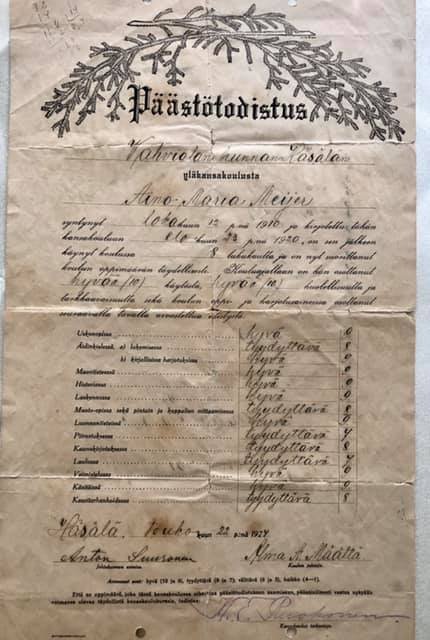 Päästötodistus
yläkansakoulusta
Aino Maria Meijer
syntynyt lokakuun 12 p:nä 1910 ja kirjoitettu tähän
kansakouluun elokuun 23 p:nä 1920, on sen jälkeen
käynyt koulua lukukautta ja on nyt suorittanut
koulun oppimäärän täydellisesti. Kouluajallaan on hän osottanut
hyvää (10) käytöstä, hyvää (10) huolellisuutta ja
tarkkaavaisuutta sekä koulun oppi- ja harjotusaineissa osottanut
seuraavalla tavalla arvosteltua edistystä:
Uskonnossa hyvä
Äidinkielessä, a) lukemisessa tyydyttävä 8
b) kirjallisissa harjotuksissa hyvä
Maantieteessä hyvä
Historiassa hyvä
Laskennossa hyvä
Muoto-opissa sekä pintain ja kappalten mittaamisessa tyydyttävä 8
Luonnontieteissä hyvä
Piirustuksessa tyydyttävä
Kaunokirjotuksessa tyydyttävä 8
Laulussa tyydyttävä
Voimistelussa hyvä
Käsitöissä hyvä
Kasvitarhanhoidossa tyydyttävä 8
Häsälä, toukokuun 22 p:nä 1924
Anton Suuronen Alma A. Määttä
Johtokunnan puolesta. Koulun opettaja.
Arvosanat ovat: hyvä (10 ja 9), tyydyttävä (8 ja 7), välttävä (6 ja 5), heikko (4—1).
Että se oppimäärä, joka tässä kansakoulussa